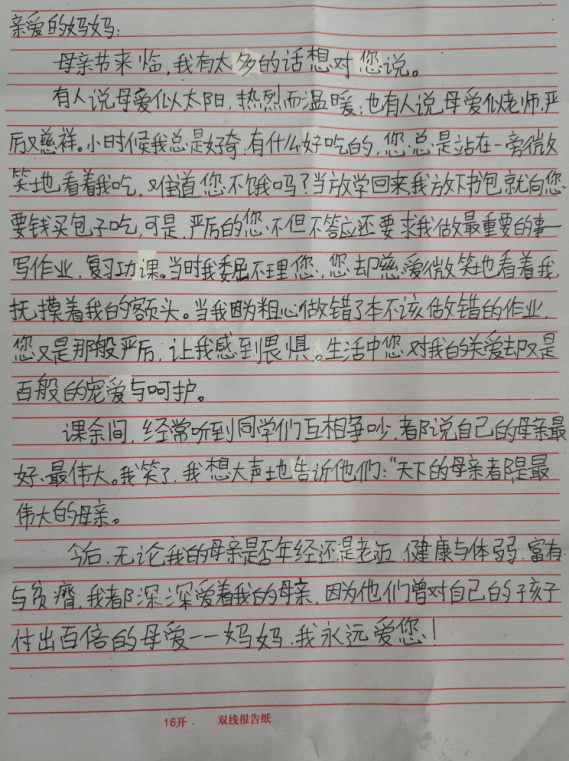 亲爱的妈妈:
母亲节来临,我有太多的话想对您说。
有人说母爱似太阳,热烈而温暖;也有人说母爱似老师,严
厉又慈祥。小时候我总是好奇,有什么好吃的,您总是站在一旁微
笑地看着我吃,难道您不饿吗?当放学回来我放下书包就向您
要钱买包子吃,可是,严厉的您不但不答应还要求我做最重要的事一
写作业,复习功课。当时我委屈不理您,您却慈爱微笑地看着我
抚摸着我的额头。当我因为粗心做错了本不该做错的作业,
您又是那般严厉,让我感到畏惧。生活中您对我的关爱却又是
百般的宠爱与呵护。
课余间,经常听到同学们互相争吵,都说自己的母亲最
好、最伟大。我笑了,我想大声地告诉他们:“天下的母亲都是最
伟大的母亲。
今后,无论我的母亲是否年经还是老迈,健康与体弱,富有
与贫瘠,我都深深爱着我的母亲,因为他们曾对自己的孩子
付出百倍的母爱——妈妈,我永远爱您!
16开. 双线报告纸